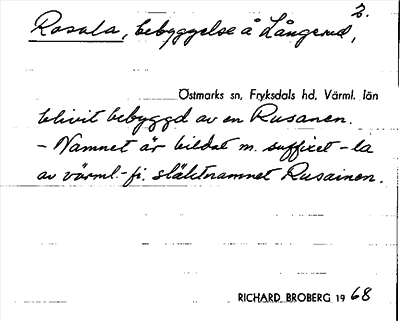 2.
Rosala, bebyggelse å Långerud,
Östmarks sn, Fryksdals hd, Värml. län
blivit bebyggd av en Rusanen.
– Namnet är bildat m. suffixet -la
av värml.-fi. släktnamnet Rusainen.
RICHARD BROBERG 1968